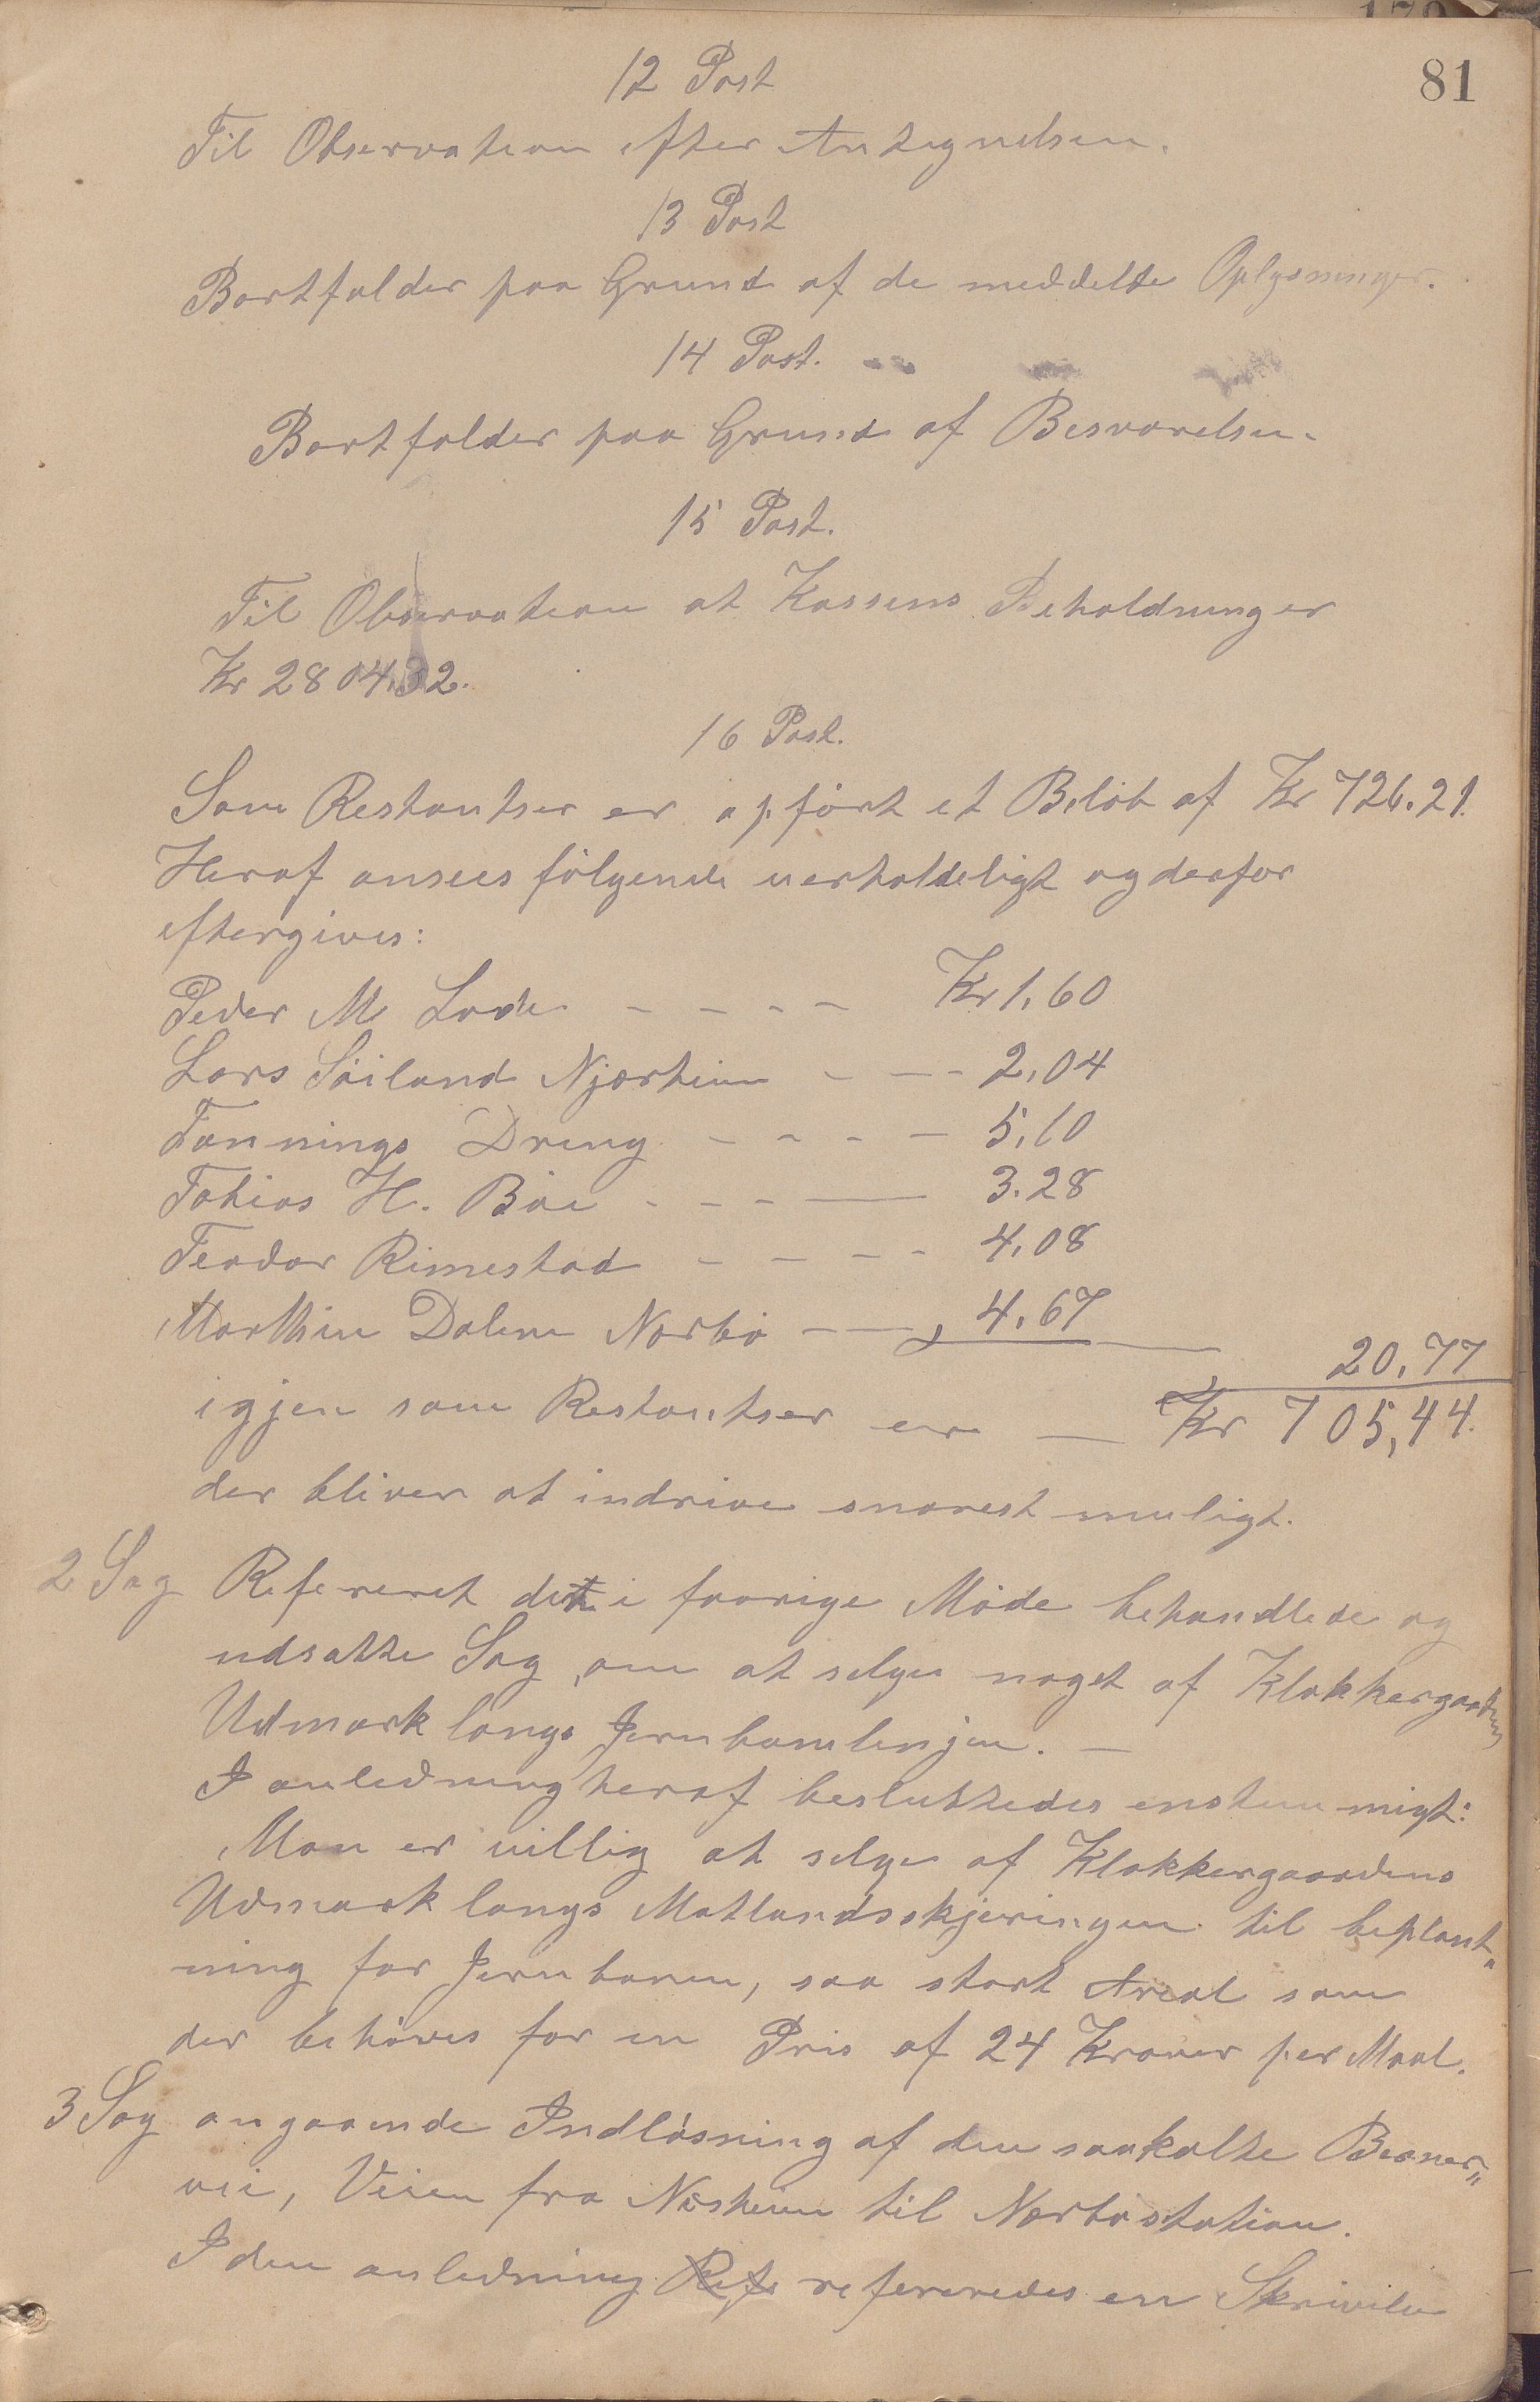 81
12 Post
Til Observation efter Antegnelsen.
13 Post
Bortfalder paa Grund af de meddelte Oplysninger.
14 Post.
Bortfalder paa Grund af Besvarelsen.
15 Post.
Til Observation at Kassens Beholdning er
Kr 2804.32.
16 Post.
Som Restantser er opført et Beløb af Kr 726.21.
Heraf ansees følgende uerholdeligt og derfor
eftergives:
Peder M Lode - - - - Kr 1,60
Lars Söiland Njærheim - - - 2,04
Tønnings Dreng - - - - 5,10
Tobias H. Böe - - - - 3.28
Teodor Rimestad - - - - 4,08
Marthin Dalene Nærbö - - 4,67
20,77
igjen som Restantser er - Kr 705,44.
der bliver at indrive snarest muligt.
2 Sag Refereret det i forrige Möde behandlede og
udsatte Sag, om at selge noget af Klokkergaardens
Udmark langs Jernbanelinjen. -
I anledning heraf besluttedes enstemmigt:
Man er villig at selge af Klokkergaardens
Udmark langs Motlandsskjeringen til beplant„
ning for Jernbanen, saa stort Areal som
der behöves for en Pris af 24 Kroner per Maal.
3 Sag angaaende Indlösning af den saakalte Beaner„
vei, Veien fra Næsheim til Nærbö station.
I den anledning Refe refereredes en Skrivelse